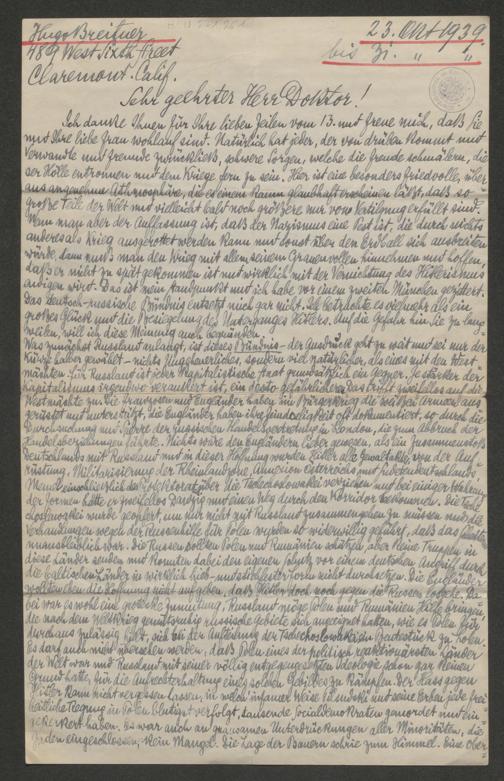 Hugo Breitner
489 West Sixth Street
Claremont. Calif.
23. Okt 1939.
bis Zi. " "
Sehr geehrter Herr Doktor!
Ich danke Ihnen für Ihre lieben Zeilen vom 13. und freue mich, daß Sie
und Ihre liebe Frau wohlauf sind. Natürlich hat jeder, der von drüben kommt und
Verwandte und Freunde zurückließ, schwere Sorgen, welche die Freude schmälern, die
ser Hölle entronnen und dem Kriege fern zu sein. Hier ist eine besonders friedvolle, über
aus angenehme Athmosphäre, die es einem kaum glaubhaft erscheinen läßt, daß so
große Teile der Welt und vielleicht bald noch größere nur von Vertilgung erfüllt sind.
Wenn man aber der Auffassung ist, daß der Nazismus eine Pest ist, die durch nichts
anderes als Krieg ausgerottet werden kann und sonst über den Erdball sich ausbreiten
würde, dann muß man den Krieg mit allem seinem Grauenvollen hinnehmen und hoffen,
daß er nicht zu spät gekommen ist und wirklich mit der Vernichtung des Hitlerismus
endigen wird. Das ist mein Standpunkt und ich habe vor einem zweiten München gezittert.
Das deutsch-russische Bündnis entsetzt mich gar nicht. Ich betrachte es vielmehr als ein
großes Glück und die Besiegelung des Unterganges Hitlers. Auf die Gefahr hin Sie zu lang
weilen, will ich diese Meinung auch begründen.
Was zunächst Russland anlangt, ist dieses Bündnis - der Ausdruck geht zu weit und sei nur der
Kürze halber gewählt - nichts Ungeheuerliches, sondern viel natürlicher, als eines mit den West
mächten. Für Russland ist jeder kapitalistische Staat grundsätzlich ein Gegner. Je stärker der
Kapitalismus irgendwo verankert ist, ein desto gefährlicherer. Das trifft zweifellos auf die
Westmächte zu. Die Franzosen und Engländer haben im Bürgerkrieg die weißen Armeen aus
gerüstet und unterstützt, die Engländer haben ihre Feindseligkeit oft dokumentiert, so durch die
Durchsuchung und Sperre der russischen Handelsvertretung in London, die zum Abbruch der
Handelsbeziehungen führte. Nichts wäre den Engländern lieber gewesen, als ein Zusammenstoß
Deutschlands mit Russland und in dieser Hoffnung wurden Hitler alle Gewaltakte von der Auf
rüstung, Militarisierung der Rheinlandzone, Annexion Österreichs und Sudetendeutschlands
Memel einschließlich des Protektorats über die Tschechoslowakei verziehen und bei einiger Wahrung
der Formen hätte er zweifellos Danzig und einen Weg durch den Korridor bekommen. Die Tsche
choslowakei wurde geopfert, um nur nicht mit Russland zusammengehen zu müssen und die
Verhandlungen wegen der Russenhilfe für Polen wurden so widerwillig geführt, daß das
unausbleiblich war. Die Russen sollten Polen und Rumänien schützen, aber keine Truppen in
diese Länder senden und konnten dabei den eigenen Schutz vor einem deutschen Angriff durch
die baltischen Länder in wirklich hieb- und stichfester Form nicht durchsetzen. Die Engländer
wollten eben die Hoffnung nicht aufgeben, daß Hitler doch noch gegen die Russen losgehe. Da
bei war es wohl eine groteske Zumutung, Russland möge Polen und Rumänien Hilfe bringen,
die nach dem Weltkrieg großrussische Gebiete sich angeeignet haben, wie es Polen für
durchaus zulässig hielt, sich bei der Aufteilung der Tschechoslowakei ein Beutestück zu holen.
Es darf auch nicht übersehen werden, daß Polen eines der politisch reaktionärsten Länder
der Welt war und Russland mit seiner völlig entgegengesetzten Ideologie schon gar keinen
Grund hatte, für die Aufrechterhaltung eines solchen Gebildes zu kämpfen. Der Hass gegen
Hitler kann nicht vergessen lassen, in welch infamer Weise Pilsudski und seine Erben jede frei
heitliche Regung in Polen blutigst verfolgt, tausende Sozialdemokraten gemordet und ein
gekerkert haben. Es war auch an grausamen Unterdrückungen aller Minoritäten, die
Juden eingeschlossen, kein Mangel. Die Lage der Bauern schrie zum Himmel. Eine Ober